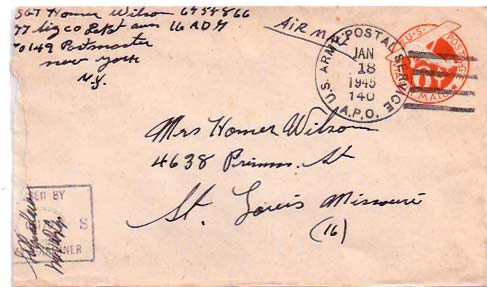 SGT Homer Wilson 6954866
77 Sig Co 16 A.D.G
%0149 Postmaster
new york
N.Y.
AIR MAIL
U.S. ARMY POSTAL SERVICE
JAN
18
1945
140
A.P.O.
U.S. POSTAGE
AIR MAIL
Mrs Homer Wilson
4638 St
St. Louis Missouri
(16)
ED BY
S